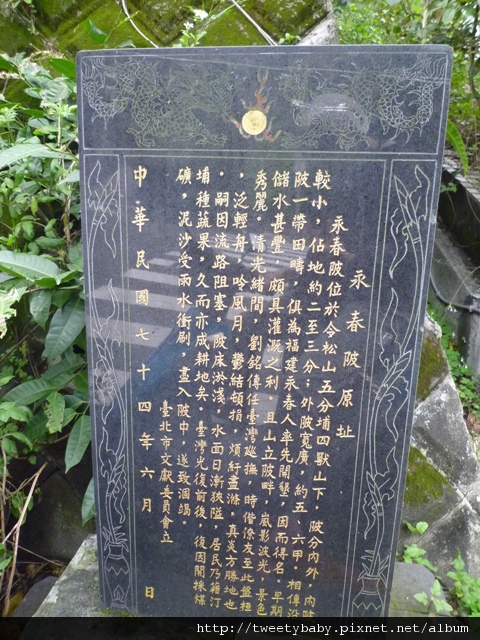 永春陂原址
永春陂位於今松山五分埔四獸山下，陂分內外，內陂
較小，佔地約二至三分；外陂寬廣，約五、六甲。相傳沿
陂一帶田疇，俱為福建永春人率先開墾，因而得名。早期
儲水甚豐，頗具灌溉之利。且山立陂畔，嵐影波光，景色
秀麗。清光緒間，劉銘傳任臺灣巡撫，時偕僚友至此盤桓
，泛輕舟，吟風月，鬱結頓捐，煩紆盡滌，真炎方勝地也
。嗣因流路阻塞，陂床淤淺，水面日漸狹隘，居民乃藉汀
埔種蔬果，久而亦成耕地矣。臺灣光復前後，復因開採煤
礦，泥沙受雨水衝刷，盡入陂中，遂致涸竭。
臺北市文獻委員會立
中華民國七十四年六月 日
http://tweetybaby.pixnet.net/album